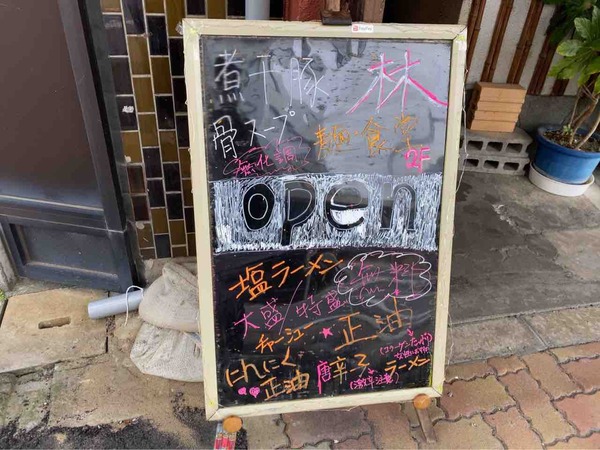 煮干豚 林
骨スープ 麺食堂
無化調 2F
open
塩ラーメン
大盛/特盛 無料
チャーシュー★正油
にんにく 唐辛子 ラーメン
正油 (激辛注意)